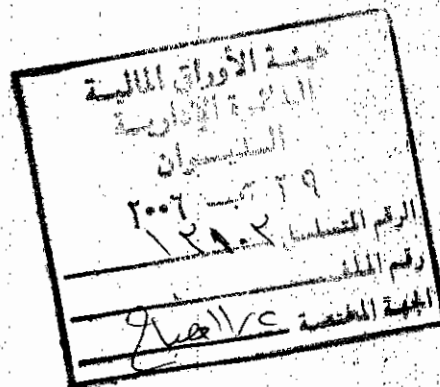 هيئة الأوراق المالية
الدائرة الإدارية
الديوان
٢٩ ٢٠٠٦
الرقم المتسلسل ١٢٩٠٢
رقم الملف
الجهة المختصة